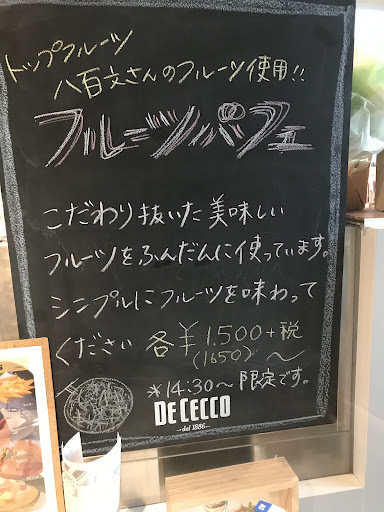 トップフルーツ
八百文さんのフルーツ使用!!
フルーツパフェ
こだわり抜いた美味しい
フルーツをふんだんに使っています。
シンプルにフルーツを味わって
ください 各¥1.500+税
(1650) 〜
※14:30〜限定です。
DE CECCO
dal 1886